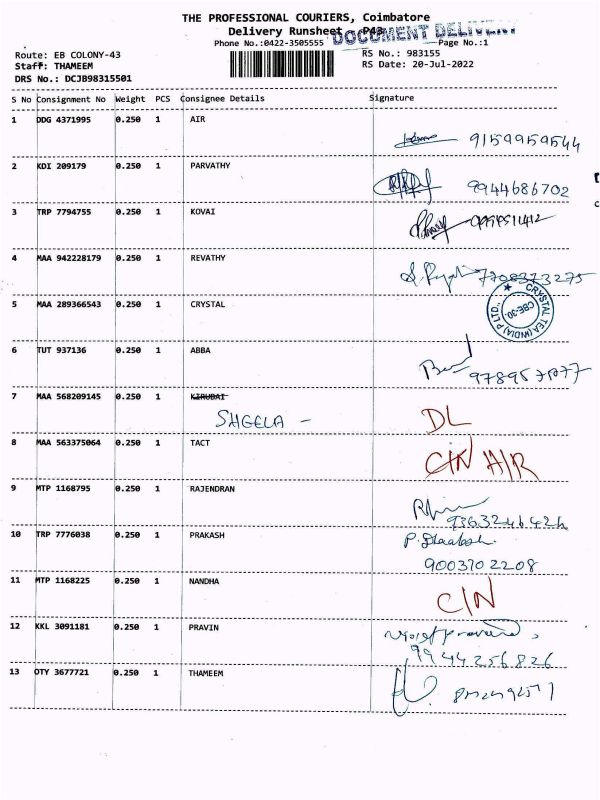 THE PROFESSIONAL COURIERS, Coimbatore
Delivery Runsheet
DOCUMENT DELIVERY
Phone No.:0422-3505555 Page No.:1
Route: EB COLONY-43 RS No.: 983155
Staff: THAMEEM RS Date: 20-Jul-2022
DRS No.: DCJB98315501
S No Consignment No Weight PCS Consignee Details Signature
1 DDG 4371995 0.250 1 AIR
9159959544
2 KDI 209179 0.250 1 PARVATHY
9944686702
3 TRP 7794755 0.250 1 KOVAI
4 MAA 942228179 0.250 1 REVATHY
7708373275
5 MAA 289366543 0.250 1 CRYSTAL
CRYSTAL TEA (INDIA) P LTD., CBE-30.
6 TUT 937136 0.250 1 ABBA
7 MAA 568209145 0.250 1 KIRUBAI
SHEELA - DL
8 MAA 563375064 0.250 1 TACT
CIN A/R
9 MTP 1168795 0.250 1 RAJENDRAN
10 TRP 7776038 0.250 1 PRAKASH
9003702208
11 MTP 1168225 0.250 1 NANDHA
CIN
12 KKL 3091181 0.250 1 PRAVIN
9944256826
13 OTY 3677721 0.250 1 THAMEEM